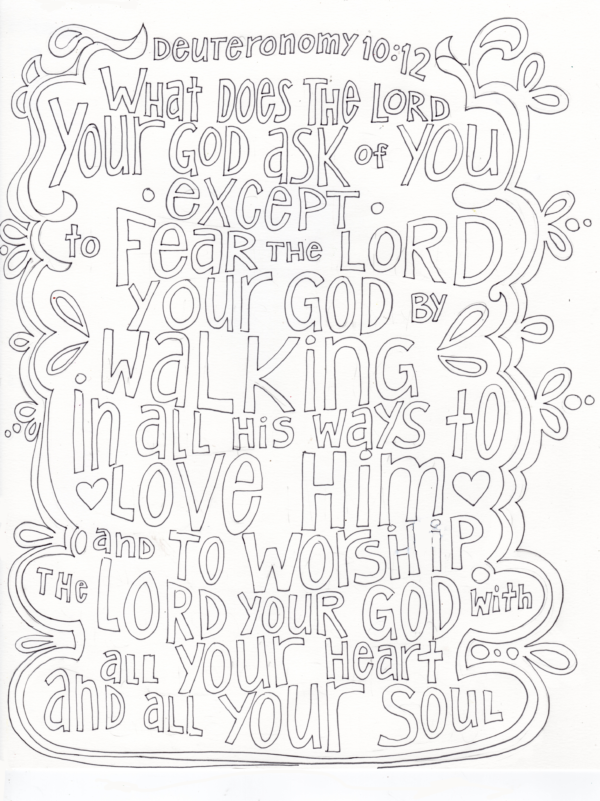 Deuteronomy 10:12
WHat DOES THE LORD
your GOD ask of you
except
to Fear THE LORD
your GOD BY
WaLKing
in all His ways to
LOVE Him
and TO WorsHiP
THE LORD your GOD with
all your Heart
and all your SOUL